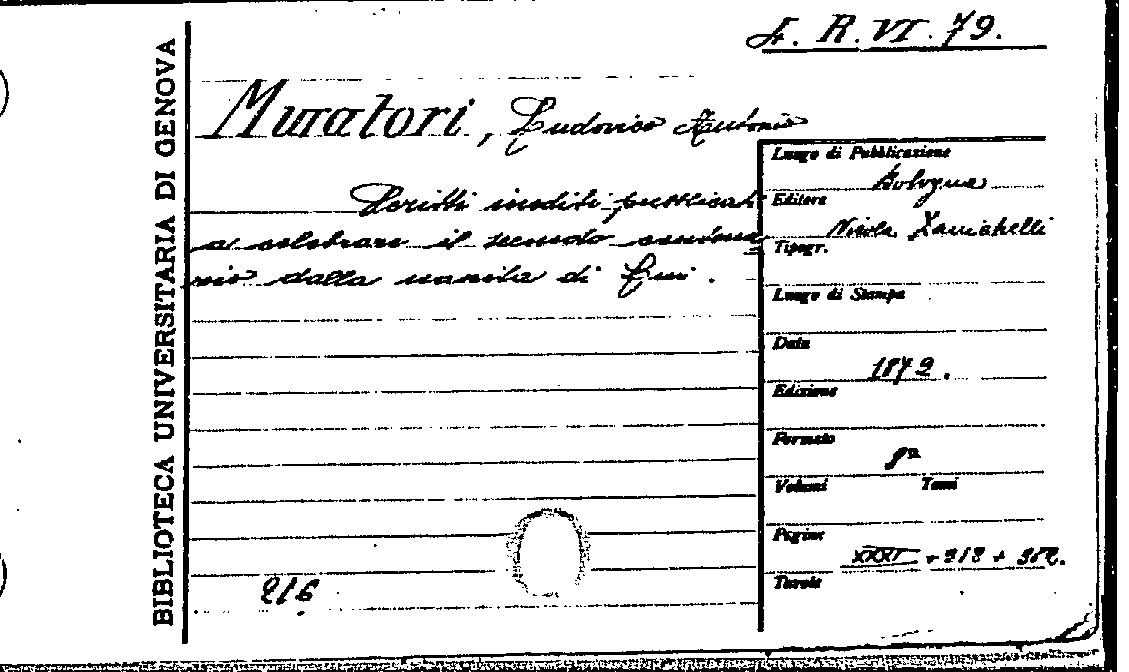 BIBLIOTECA UNIVERSITARIA DI GENOVA
4. R. VI. 79.
Muratori, Ludovico Antonio
Scritti inediti pubblicati
a celebrare il secondo centena
rio dalla nascita di Lui.
216
Luogo di Pubblicazione
Bologna
Editore
Nicola Zanichelli
Tipogr.
Luogo di Stampa
Data
1872.
Edizione
Formato
8º
Volumi Tomi
Pagine
XXXII +
Tavole